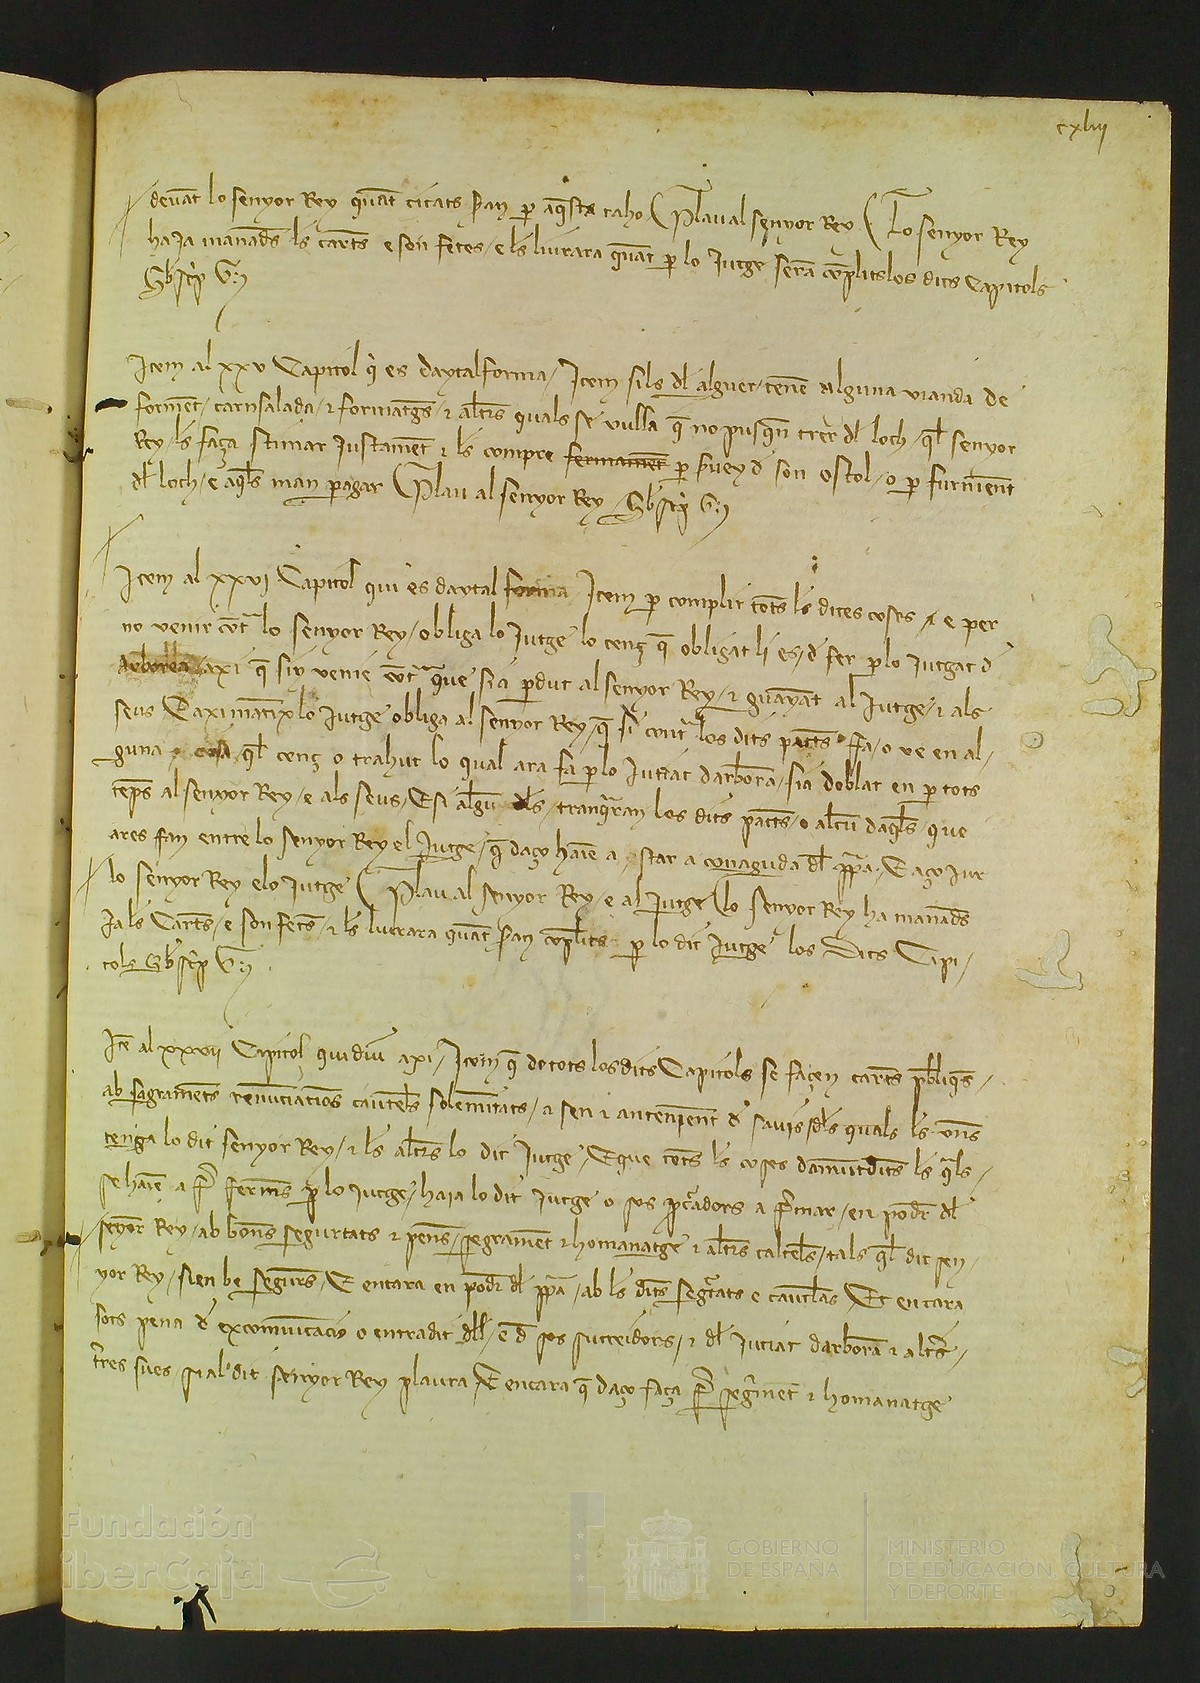 cxliij
devat lo senyor Rey quat citats sran p aqsta raho Plau al senyor Rey Lo senyor Rey
ha ja manads ls carts e son fetes e ls liurara quat p lo Jutge sera coplits los dits Capitols
Item al xxv Capitol q es daytal forma Item sils dl alguer tene alguna vianda de
forment carnsalada e formatgs e altrs quals se vulla q no pusqn trer dl loch ql senyor
Rey ls faça stimar justamet e ls compre fermamet p svey d son estol o p furniment
dl loch e aqls man pagar Plau al senyor Rey
Item al xxvi Capitol qui es daytal forma Item p complir tots ls dites coses e per
no venir cotra lo senyor Rey obliga lo Jutge lo cens q obligat li es d fer p lo Jutgat d
Arborea axi q siy venie cotra que sia pdut al senyor Rey e guayat al Jutge e als
seus E axi matix lo Jutge obliga al senyor Rey q si contra los dits pacts fa o ve en al
guna cosa ql cens o trahut lo qual ara fa p lo Jutiat darborea sia doblat en p tots
temps al senyor Rey e als seus E si algu dls tranqran los dits pacts o alcu daqls que
ares fan entre lo senyor Rey el Jutge q daço haie a star a conaguda dl ppa E aço jur
lo senyor Rey e lo Jutge Plau al senyor Rey e al Jutge lo senyor Rey ha manads
ja ls Carts e son fets e ls liurara quat sran coplits p lo dit Jutge los dits Capi
tols
Ite al xxvii Capitol qui diu axi Item q de tots los dits Capitols se façen carts publiqs
ab sagramets renuciacios cauteles solemnitats a sen e antenimet d savis dls quals ls uns
tenga lo dit senyor Rey e ls altrs lo dit Jutge E que tots ls coses damutdits ls qls
se haie a fr ferms p lo Jutge haia lo dit Jutge o sos pcradors a frmar en podr dl
senyor Rey ab bons segurtats e pens segramet e homanatge e altrs cauteles tals ql dit sen
yor Rey sien be segurs E encara en podr dl ppa ab ls dits segrtats e cautelas Et encara
sots pena d excomunicacio o entradit dell e d sos succeidors e dl Jutiat darborea e altrs
trres sues si al dit senyor Rey plaura E encara q daço faça fr segramet e homanatge
Fundación
iberCaja
GOBIERNO
DE ESPAÑA
MINISTERIO
DE EDUCACIÓN, CULTURA
Y DEPORTE